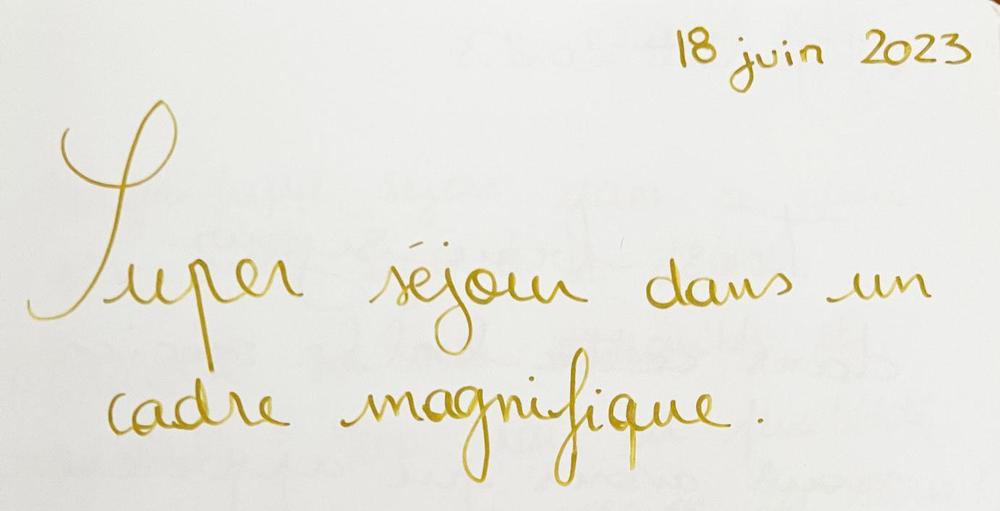 18 juin 2023
Super séjour dans un
cadre magnifique.